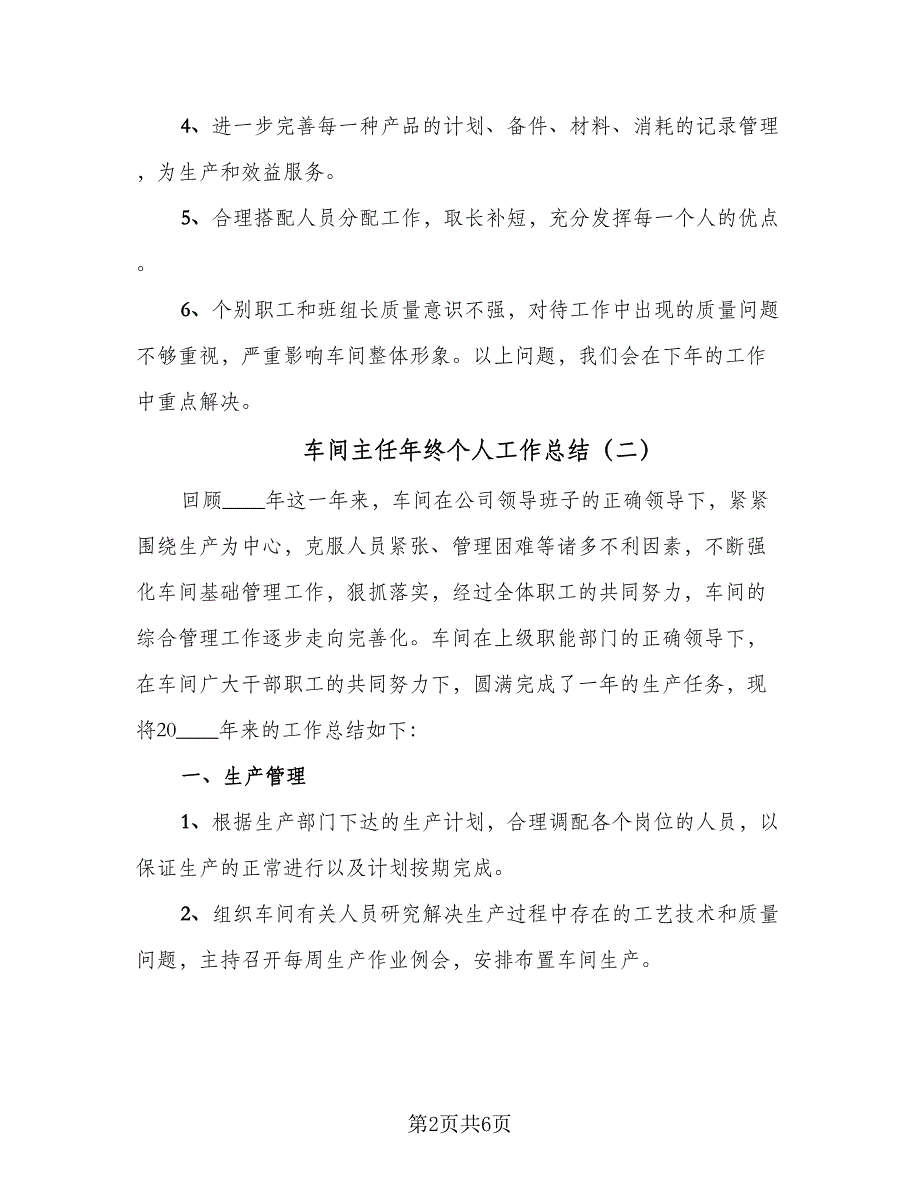 4、进一步完善每一种产品的计划、备件、材料、消耗的记录管理
，为生产和效益服务。
5、合理搭配人员分配工作，取长补短，充分发挥每一个人的优点
。
6、个别职工和班组长质量意识不强，对待工作中出现的质量问题
不够重视，严重影响车间整体形象。以上问题，我们会在下年的工作
中重点解决。
车间主任年终个人工作总结（二）
回顾____年这一年来，车间在公司领导班子的正确领导下，紧紧
围绕生产为中心，克服人员紧张、管理困难等诸多不利因素，不断强
化车间基础管理工作，狠抓落实，经过全体职工的共同努力，车间的
综合管理工作逐步走向完善化。车间在上级职能部门的正确领导下，
在车间广大干部职工的共同努力下，圆满完成了一年的生产任务，现
将20____年来的工作总结如下：
一、生产管理
1、根据生产部门下达的生产计划，合理调配各个岗位的人员，以
保证生产的正常进行以及计划按期完成。
2、组织车间有关人员研究解决生产过程中存在的工艺技术和质量
问题，主持召开每周生产作业例会，安排布置车间生产。
第2页共6页